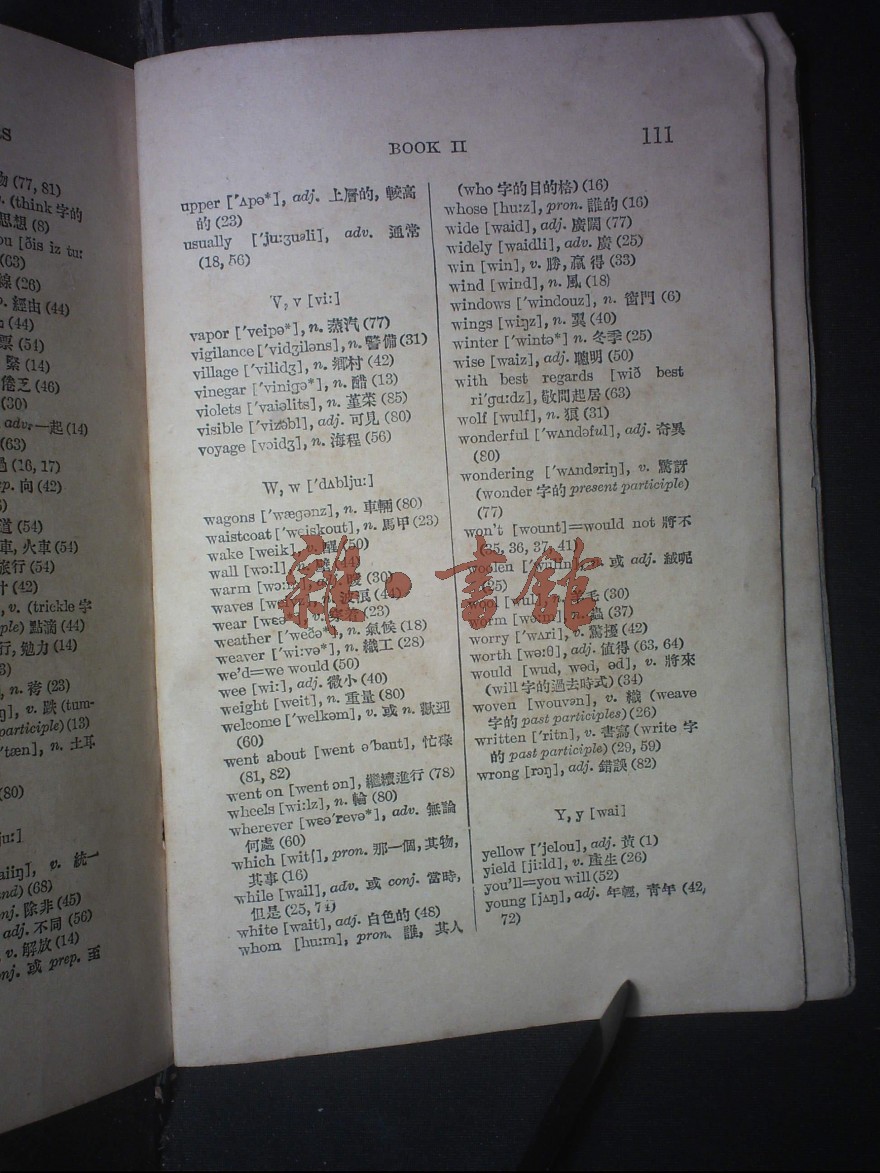 ES
物 (77, 81)
v. (think 字的
思想 (8)
ou [ðis iz tu:
(63)
線 (26)
p. 經由 (44)
(44)
票 (54)
緊 (14)
倦乏 (46)
(30)
adv. 一起 (14)
(63)
過 (16, 17)
ep. 向 (42)
道 (54)
車, 火車 (54)
旅行 (54)
汁 (42)
, v. (trickle 字
ple) 點滴 (44)
行, 勉力 (14)
3)
n. 袴 (23)
ŋ], v. 跌 (tum-
participle) (13)
'tæn], n. 土耳
(80)
ju:]
aiiŋ], v. 統一
and) (68)
onj. 除非 (45)
adj. 不同 (56)
, v. 解放 (14)
nj. 或 prep. 至
BOOK II
111
upper ['ʌpə*], adj. 上層的, 較高
的 (23)
usually ['ju:ʒuəli], adv. 通常
(18, 56)
V, v [vi:]
vapor ['veipə*], n. 蒸汽 (77)
vigilance ['vidʒiləns], n. 警備 (31)
village ['vilidʒ], n. 鄉村 (42)
vinegar ['viniɡə*], n. 醋 (13)
violets ['vaiəlits], n. 堇菜 (85)
visible ['vizəbl], adj. 可見 (80)
voyage [vɔidʒ], n. 海程 (56)
W, w ['dʌblju:]
wagons ['wæɡənz], n. 車輛 (80)
waistcoat ['weiskout], n. 馬甲 (23)
wake [weik], v. 醒 (50)
wall [wɔ:l], n. 壁 (44)
warm [wɔ:m], 暖 (30)
waves [weivz], n. 波浪 (44)
wear [wɛə*], v. 穿着 (23)
weather ['weðə*], n. 氣候 (18)
weaver ['wi:və*], n. 織工 (28)
we'd=we would (50)
wee [wi:], adj. 微小 (40)
weight [weit], n. 重量 (80)
welcome ['welkəm], v. 或 n. 歡迎
(60)
went about [went ə'baut], 忙碌
(81, 82)
went on [went ɔn], 繼續進行 (78)
wheels [wi:lz], n. 輪 (80)
wherever [wɛə'revə*], adv. 無論
何處 (60)
which [witʃ], pron. 那一個, 其物,
其事 (16)
while [wail], adv. 或 conj. 當時,
但是 (25, 74)
white [wait], adj. 白色的 (48)
whom [hu:m], pron. 誰, 其人
(who 字的目的格) (16)
whose [hu:z], pron. 誰的 (16)
wide [waid], adj. 廣闊 (77)
widely [waidli], adv. 廣 (25)
win [win], v. 勝, 贏得 (33)
wind [wind], n. 風 (18)
windows ['windouz], n. 窗門 (6)
wings [wiŋz], n. 翼 (40)
winter ['wintə*] n. 冬季 (25)
wise [waiz], adj. 聰明 (50)
with best regards [wið best
ri'ɡɑ:dz], 敬問起居 (63)
wolf [wulf], n. 狼 (31)
wonderful ['wʌndəful], adj. 奇異
(80)
wondering ['wʌndəriŋ], v. 驚訝
(wonder 字的 present participle)
(77)
won't [wount]=would not 將不
(35, 36, 37, 41)
woolen ['wulin], n. 或 adj. 絨呢
(25)
wool [wul], 羊毛 (30)
worm [wə:m], n. 蟲 (37)
worry ['wʌri], v. 驚擾 (42)
worth [wə:θ], adj. 值得 (63, 64)
would [wud, wəd, əd], v. 將來
(will 字的過去時式) (34)
woven [wouvən], v. 織 (weave
字的 past participles) (26)
written ['ritn], v. 書寫 (write 字
的 past participle) (29, 59)
wrong [rɔŋ], adj. 錯誤 (82)
Y, y [wai]
yellow ['jelou], adj. 黃 (1)
yield [ji:ld], v. 產生 (26)
you'll=you will (52)
young [jʌŋ], adj. 年輕, 青年 (42,
72)
雜·書館